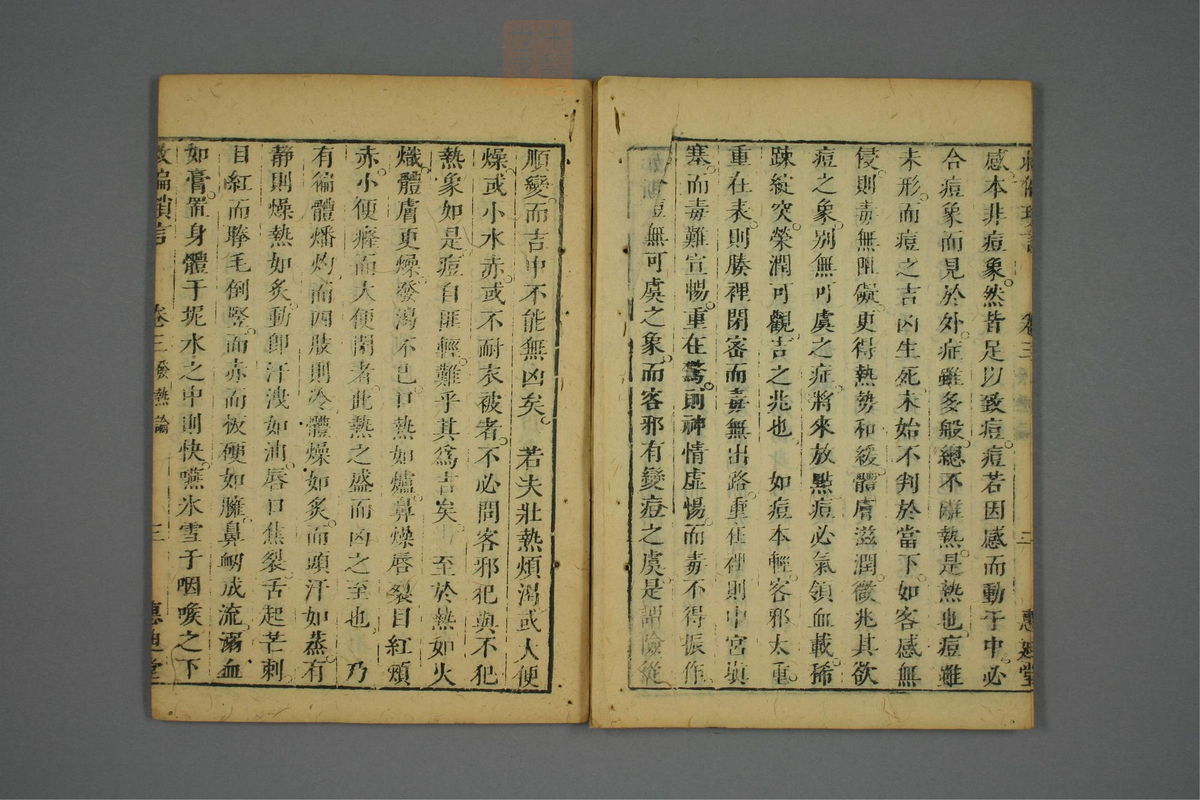 感本非痘象然皆足以致痘痘若因感而動于中必
合痘象而見於外症雖多般總不離熱是熱也痘雖
未形而痘之吉凶生死未始不判於當下如客感無
侵則毒無阻礙更得熱勢和緩體膚滋潤微兆其欲
痘之象別無可虞之症將來放點痘必氣領血載稀
疎綻突榮潤可觀吉之兆也 如痘本輕客邪太重
重在表則腠裡閉密而毒無出路重在裡則中宮塡
塞而毒難宣暢重在驚則神情虛惕而毒不得振作
痘無可虞之象而客邪有變痘之虞是謂險從
卷三 二 惠迪堂
順變而吉中不能無凶矣 若夫壯熱煩渴或大便
燥或小水赤或不耐衣被者不必問客邪犯與不犯
熱象如是痘自匪輕難乎其爲吉矣 至於熱如火
熾體膚更燥發瀉不已口熱如爐鼻燥唇裂目紅頰
赤小便癃而大便閉者此熱之盛而凶之至也 乃
有徧體燔灼而四肢則冷體燥如炙而頭汗如蒸有
靜則燥熱如炙動卽汗洩如油唇口焦裂舌起芒刺
目紅而睜毛倒竪而赤而板硬如臃鼻衂成流溺血
如膏置身體于坭水之中則快嚥氷雪于咽喉之下
救偏瑣言 卷三 發熱論 三 惠迪堂